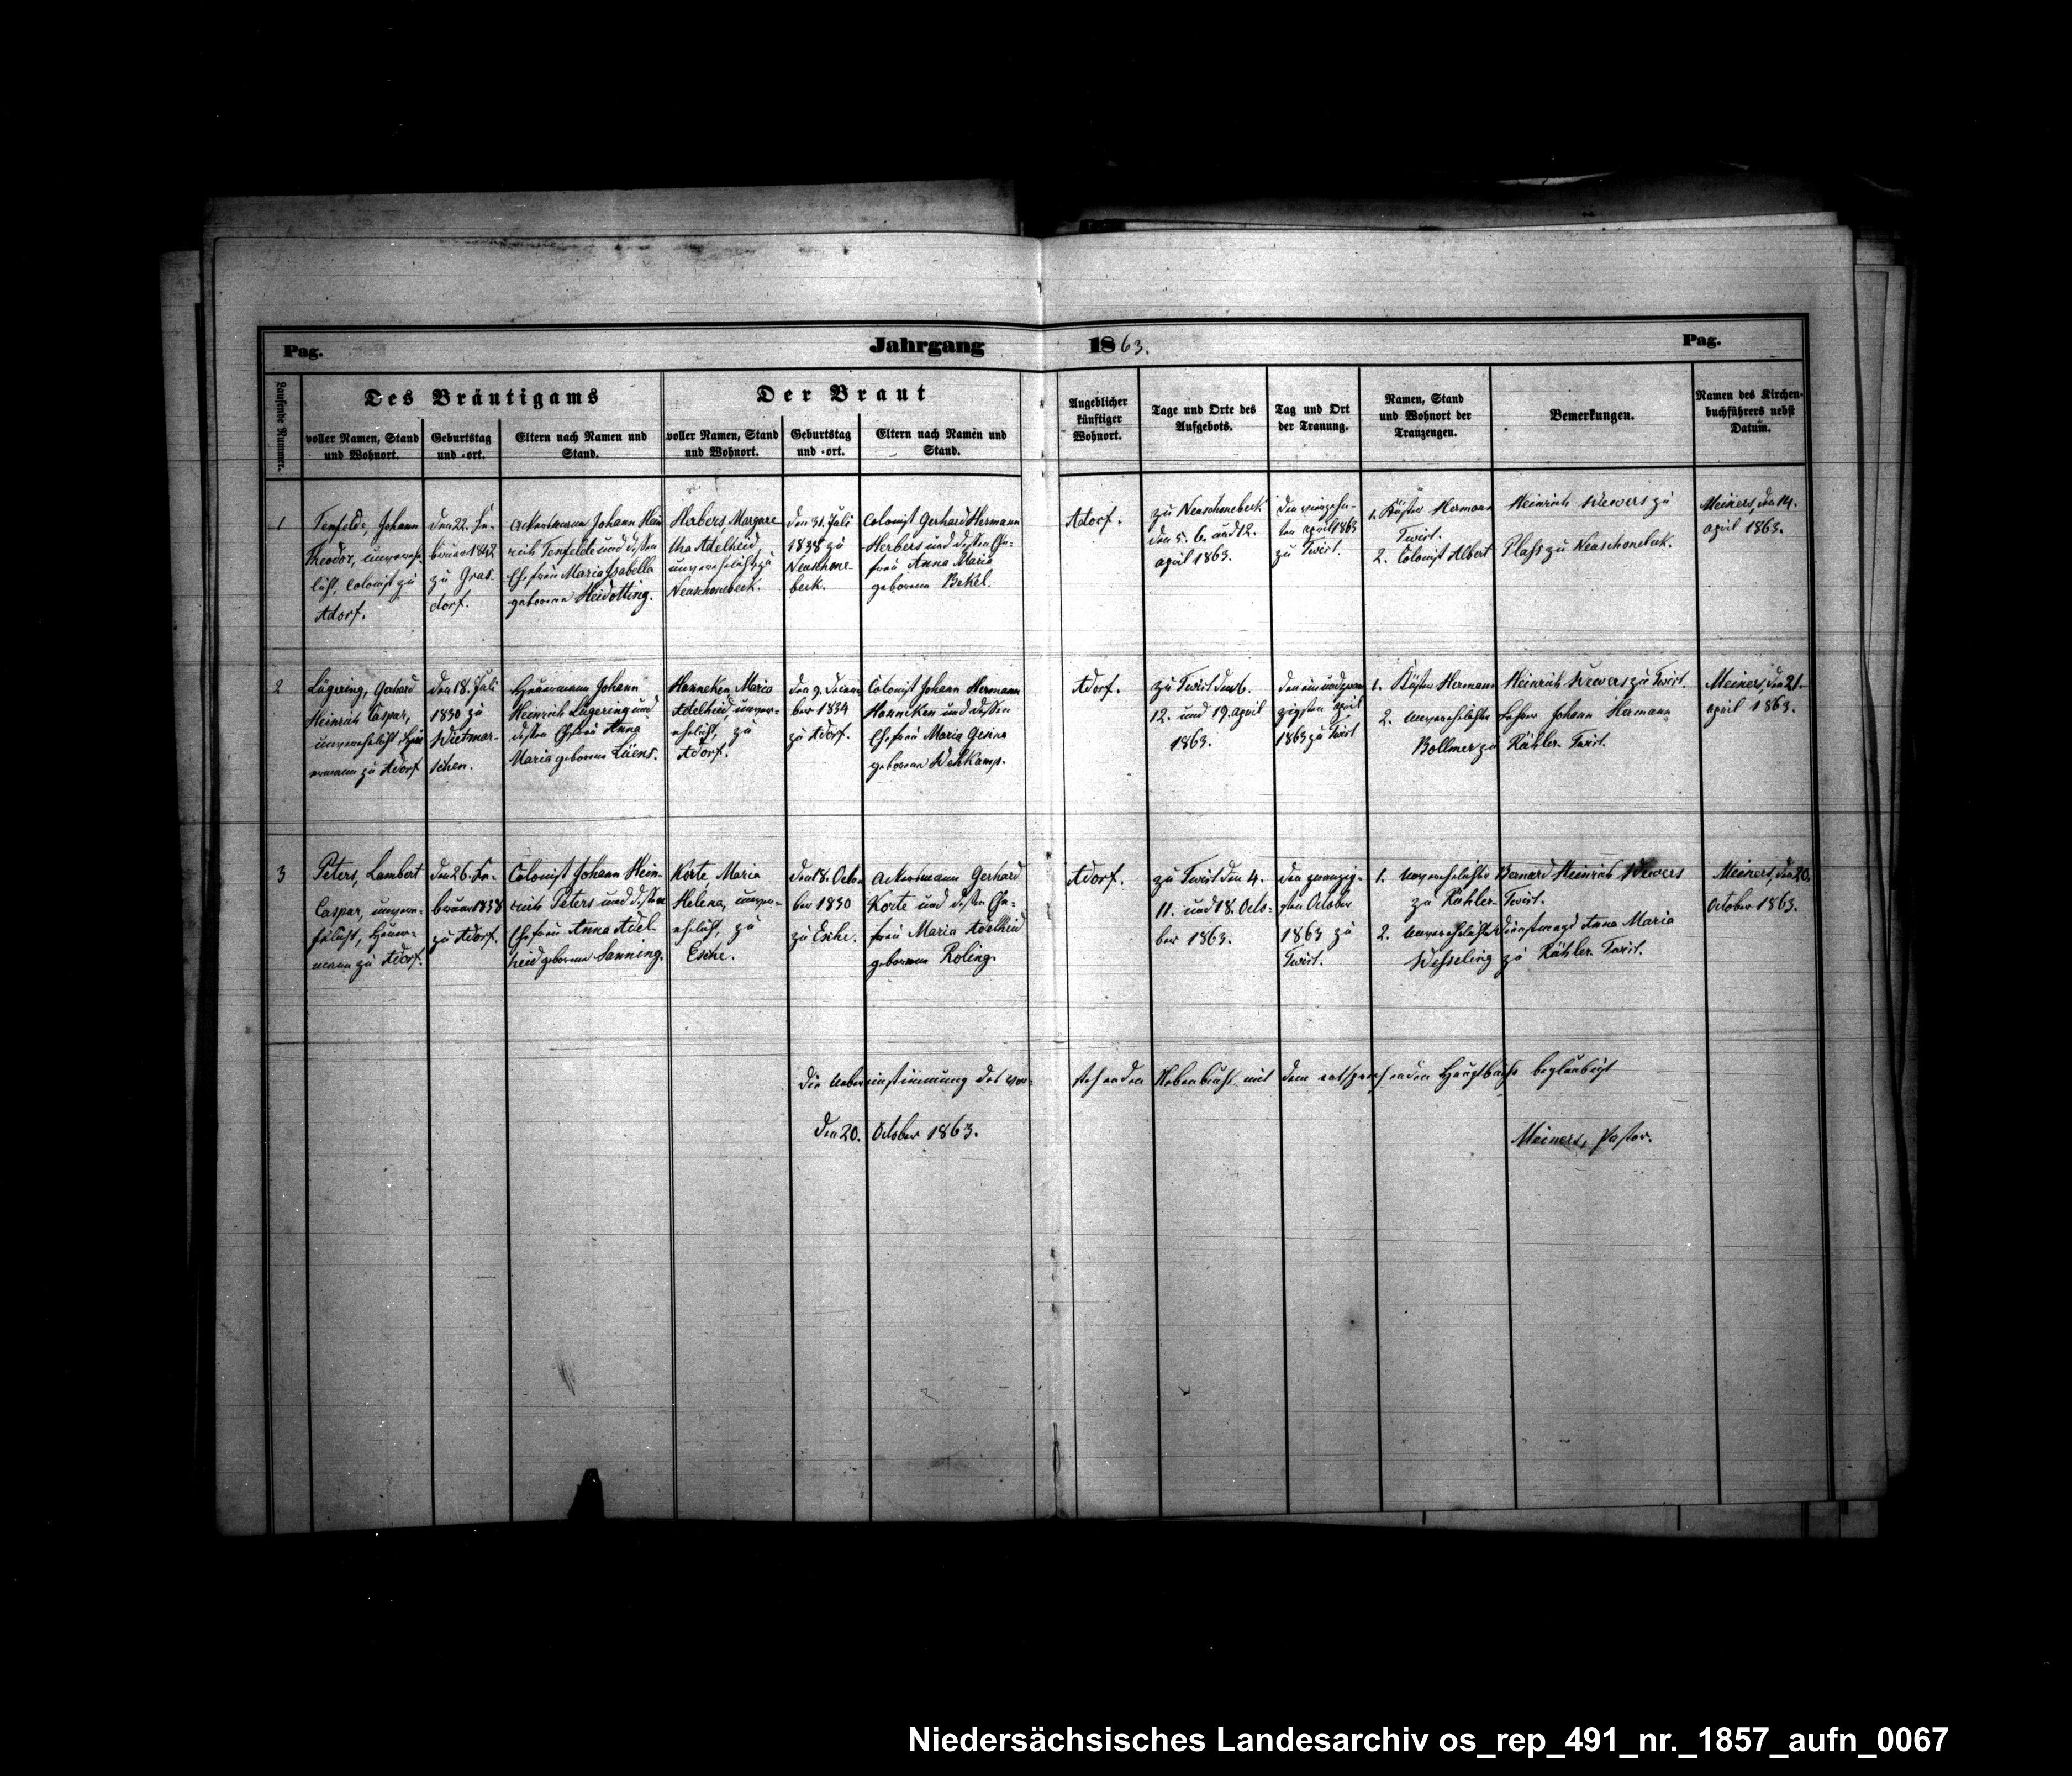 Pag.
Jahrgang 1863.
Pag.
Laufende Nummer.
Des Bräutigams
Der Braut
voller Namen, Stand
und Wohnort.
Geburtstag
und -ort.
Eltern nach Namen und
Stand.
voller Namen, Stand
und Wohnort.
Geburtstag
und -ort.
Eltern nach Namen und
Stand.
Angeblicher
künftiger
Wohnort.
Tage und Orte des
Aufgebots.
Tag und Ort
der Trauung.
Namen, Stand
und Wohnort der
Trauzeugen.
Bemerkungen.
Namen des Kirchen-
buchführers nebst
Datum.
1
Tenfelde, Johann
Theodor, unvereh-
licht, Colonist zu
Adorf.
den 22. Fe-
bruar 1842
zu Gras-
dorf.
Ackersmann Johann Hein
rich Tenfelde und dessen
Ehefrau Maria Isabella
geborene Heidotting.
Herbers, Margare
tha Adelheid,
unverehelicht, zu
Neuschonebeck.
den 31. Juli
1838 zu
Neuschone-
beck.
Colonist Gerhard Hermann
Herbers und dessen Ehe-
frau Anna Maria
geborene Bekel.
Adorf.
zu Neuschonebeck
den 5. 6. und 12.
April 1863.
den vierzehn-
ten April 1863
zu Twist.
1. Küster Hermann Heinrich Wewers zu
Twist.
2. Colonist Albert Plass zu Neuschonebeck.
Meiners, den 14.
April 1863.
2
Lügering, Gerhard
Heinrich Caspar,
unverehelicht, Heu
ermann zu Adorf
den 18. Juli
1830 zu
Wietmar-
schen.
Heuermann Johann
Heinrich Lügering und
dessen Ehefrau Anna
Maria geborene Lüens.
Hanneken, Maria
Adelheid, unver-
ehelicht, zu
Adorf.
zu Adorf.
Colonist Johann Hermann
Hanneken und dessen
Ehefrau Maria Gesina
geborene Wehkamp.
Adorf.
zu Twist den 6.
12. und 19. April
1863.
den einundzwan
zigsten April
1863 zu Twist
1. Küster Hermann Heinrich Wewers zu Twist.
2. unverehelichter Lehrer Johann Hermann
Bollmer zu Rühler-Twist.
Meiners, den 21.
April 1863.
3
Peters, Lambert
Caspar, unvere-
helicht, Heuer-
mann zu Adorf.
den 26. Fe-
bruar 1838
zu Adorf.
Colonist Johann Hein-
rich Peters und dessen
Ehefrau Anna Adel-
heid geborene Sanning.
Korte, Maria
Helena, unver-
ehelicht, zu
Esche.
den 18. Octo-
ber 1830
zu Esche.
Ackersmann Gerhard
Korte und dessen Ehe-
frau Maria Adelheid
geborene Roling.
Adorf.
zu Twist den 4.
11. und 18. Octo-
ber 1863.
den zwanzig-
sten October
1863 zu
Twist.
1. unverehelichter Bernard Heinrich Wewers
zu Rühler-Twist.
2. unverehelichte Dienstmagd Anna Maria
Wesseling zu Rühler-Twist.
Meiners, den 20.
October 1863.
Die Uebereinstimmung des vor-stehenden Nebenbuchs mit dem entsprechenden Hauptbuche beglaubigt
den 20. October 1863.
Meiners, Pastor.
Niedersächsisches Landesarchiv os_rep_491_nr._1857_aufn_0067